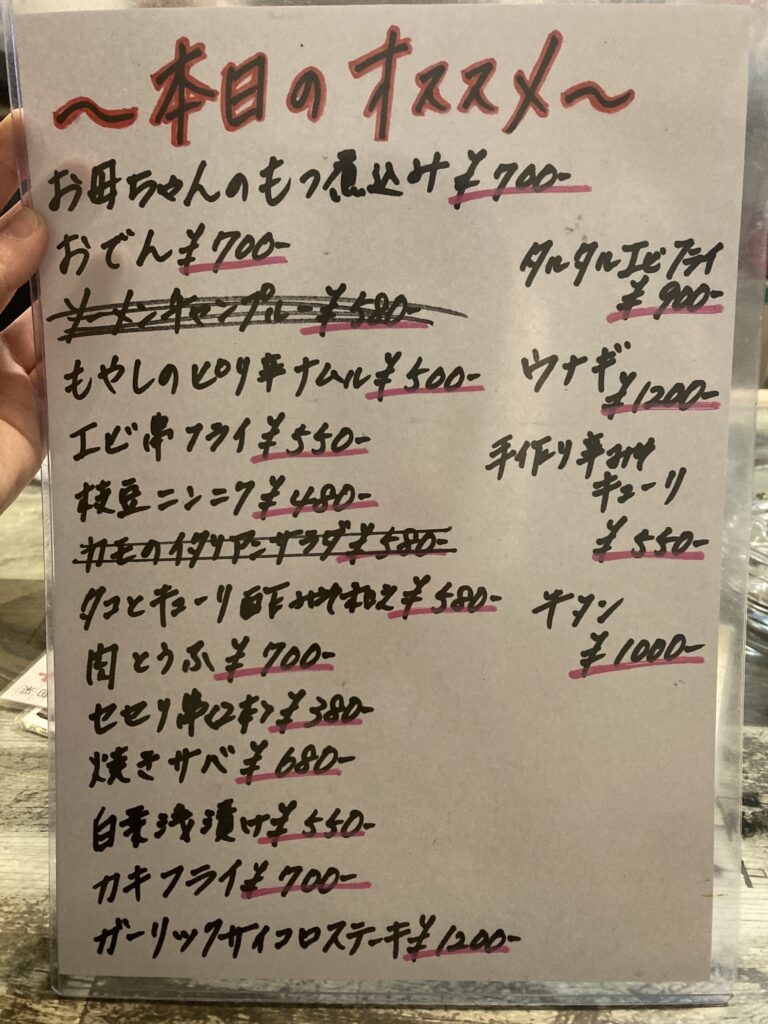 ～本日のオススメ～
お母ちゃんのもつ煮込み ¥700-
おでん ¥700-
ソーメンチャンプルー ¥580-
もやしのピリ辛ナムル ¥500-
エビ串フライ ¥550-
枝豆ニンニク ¥480-
カモのイタリアンサラダ ¥580-
タコとキューリ酢みそ和え ¥580-
肉とうふ ¥700-
セセリ串(2本) ¥380-
焼きサバ ¥680-
白菜浅漬け ¥550-
カキフライ ¥700-
ガーリックサイコロステーキ ¥1200-
タルタルエビフライ
¥900-
ウナギ
¥1200-
手作り辛みそ
キューリ
¥550-
¥1000-